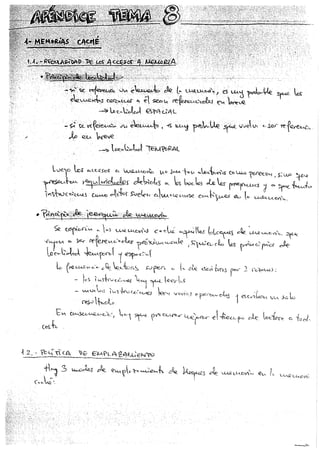 APÉNDICE TEMA 8
1- MEMORIAS CACHÉ
1.1.- REGULARIDAD DE LOS ACCESOS A MEMORIA
• Principio de localidad:
- si se referencia un elemento de la memoria, es muy probable que los
elementos cercanos a él sean referenciados en breve
→ localidad ESPACIAL
- si se referencia un elemento, es muy probable que vuelva a ser referencia
do en breve
→ localidad TEMPORAL
Luego los accesos a memoria no son tan aleatorios como parecen, sino que
presentan regularidades debidas a los bucles de los programas y a que
instrucciones como datos suelen almacenarse contiguos en la memoria.
• Principio de jerarquía de memoria:
Se copiarán a la memoria caché aquellos bloques de memoria que
vayan a ser referenciados próximamente, siguiendo los principios de
localidad temporal y espacial
La frecuencia de lecturas supera a la de escrituras por 2 razones:
- las instrucciones hay que leerlas
- muchas instrucciones leen varios operandos y escriben un solo
resultado
En consecuencia, hay que procurar mejorar el tiempo de lectura a toda
costa.
1.2.- POLÍTICA DE EMPLAZAMIENTO
Hay 3 modos de emplazamiento de bloques de memoria en la memoria
caché: